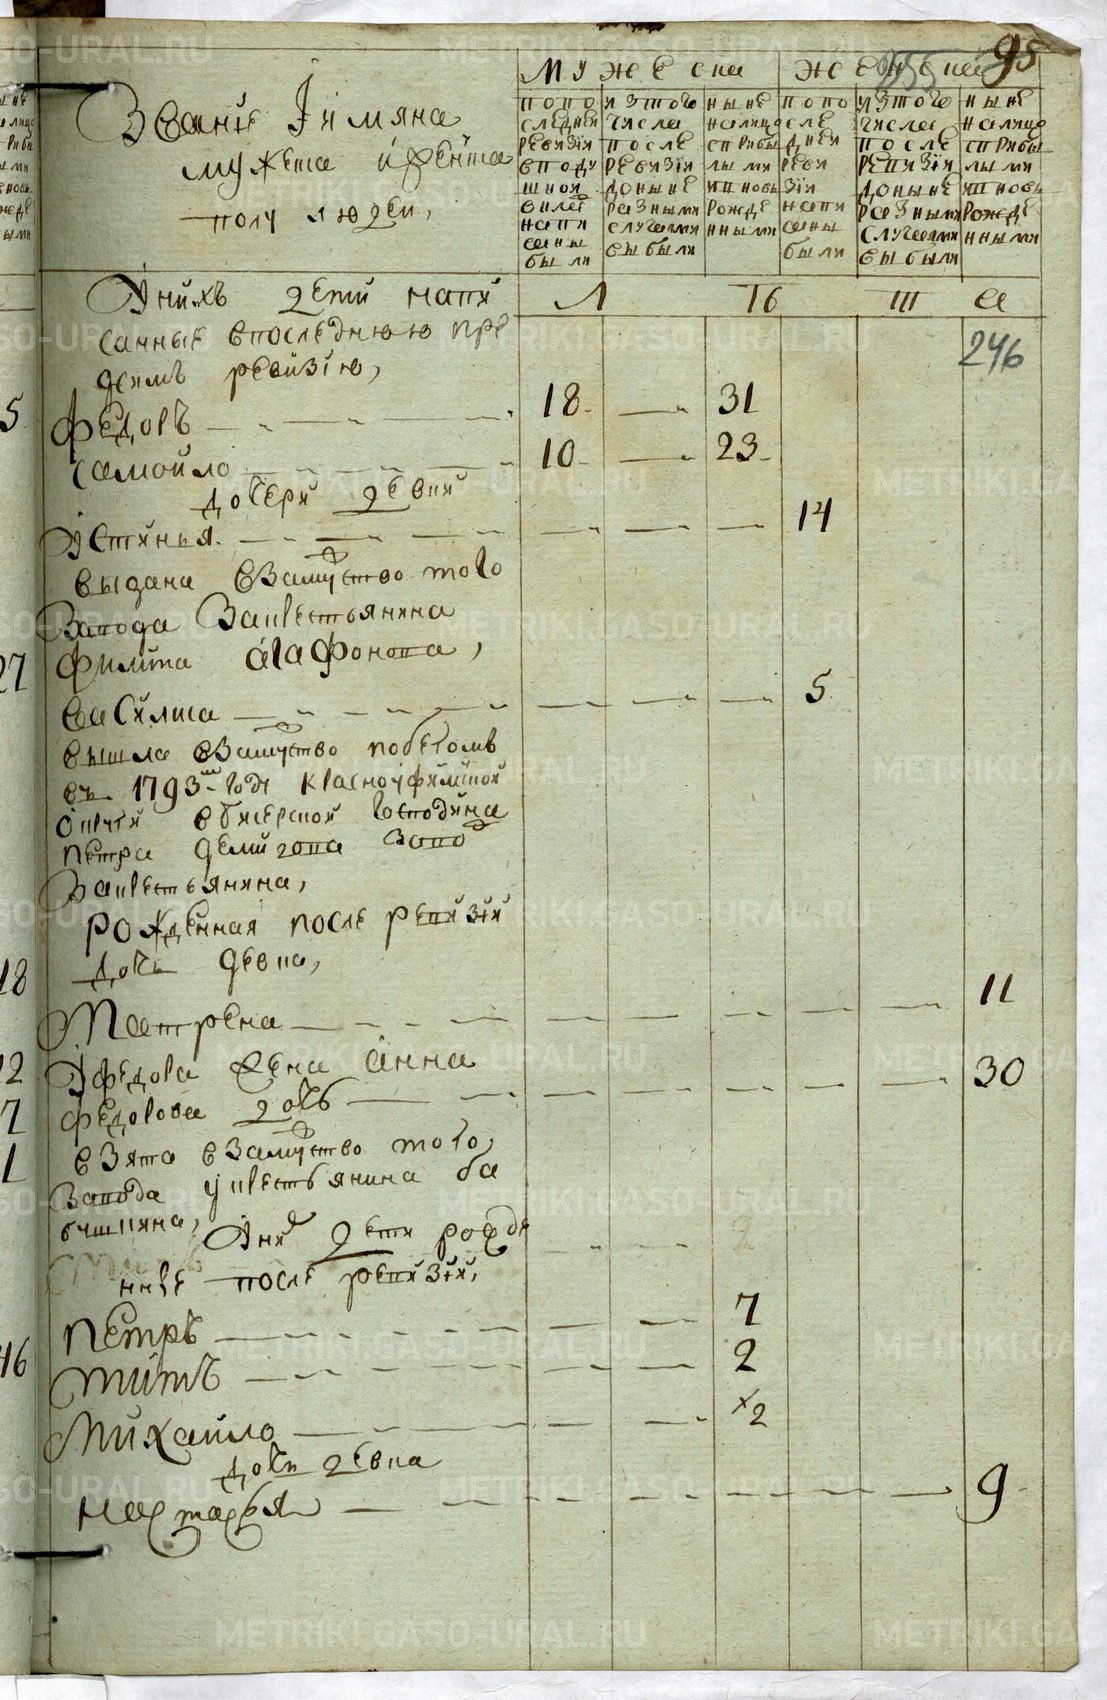 95
255
мужеска
женска
Званїе Iимяна
мужеска иженска
полу людеи,
попо следнеи ревизїи вподу шнои вилее напи саны были
изтого числа после ревизїи доныне разными случаями выбыли
ныне налицо сприбы лыми ипновь рожде нными
попо сле днеи реви зїи напи саны были
изтого числа после ревизїи доныне разными случаями выбыли
ныне налицо сприбы лыми ипновь рожде нными
Униxъ дети напи
санные впоследнюю пре
деимъ ревизїю,
246
Федоръ 18 31
Самойло 10 23
дочери девки
Устинья 14
выдана взамуство того
Завода Закрестьянина
Филипа агафонова,
василиса 5
вышла взамуство побегомъ
въ 1793м годе красноуфимской
округи вбисерской господина
петра демидова заво
Закрестьянина,
рожденная после ревизїи
дочь девка,
Матрена 11
Уфедора жена анна 30
федорова дочь
взята взамуство того,
Завода укрестьянина ба
бушкина,
Уних дети рожде
нные после ревизїи,
петръ 7
титъ 2
Михайло 2
дочь девка
настасья 9